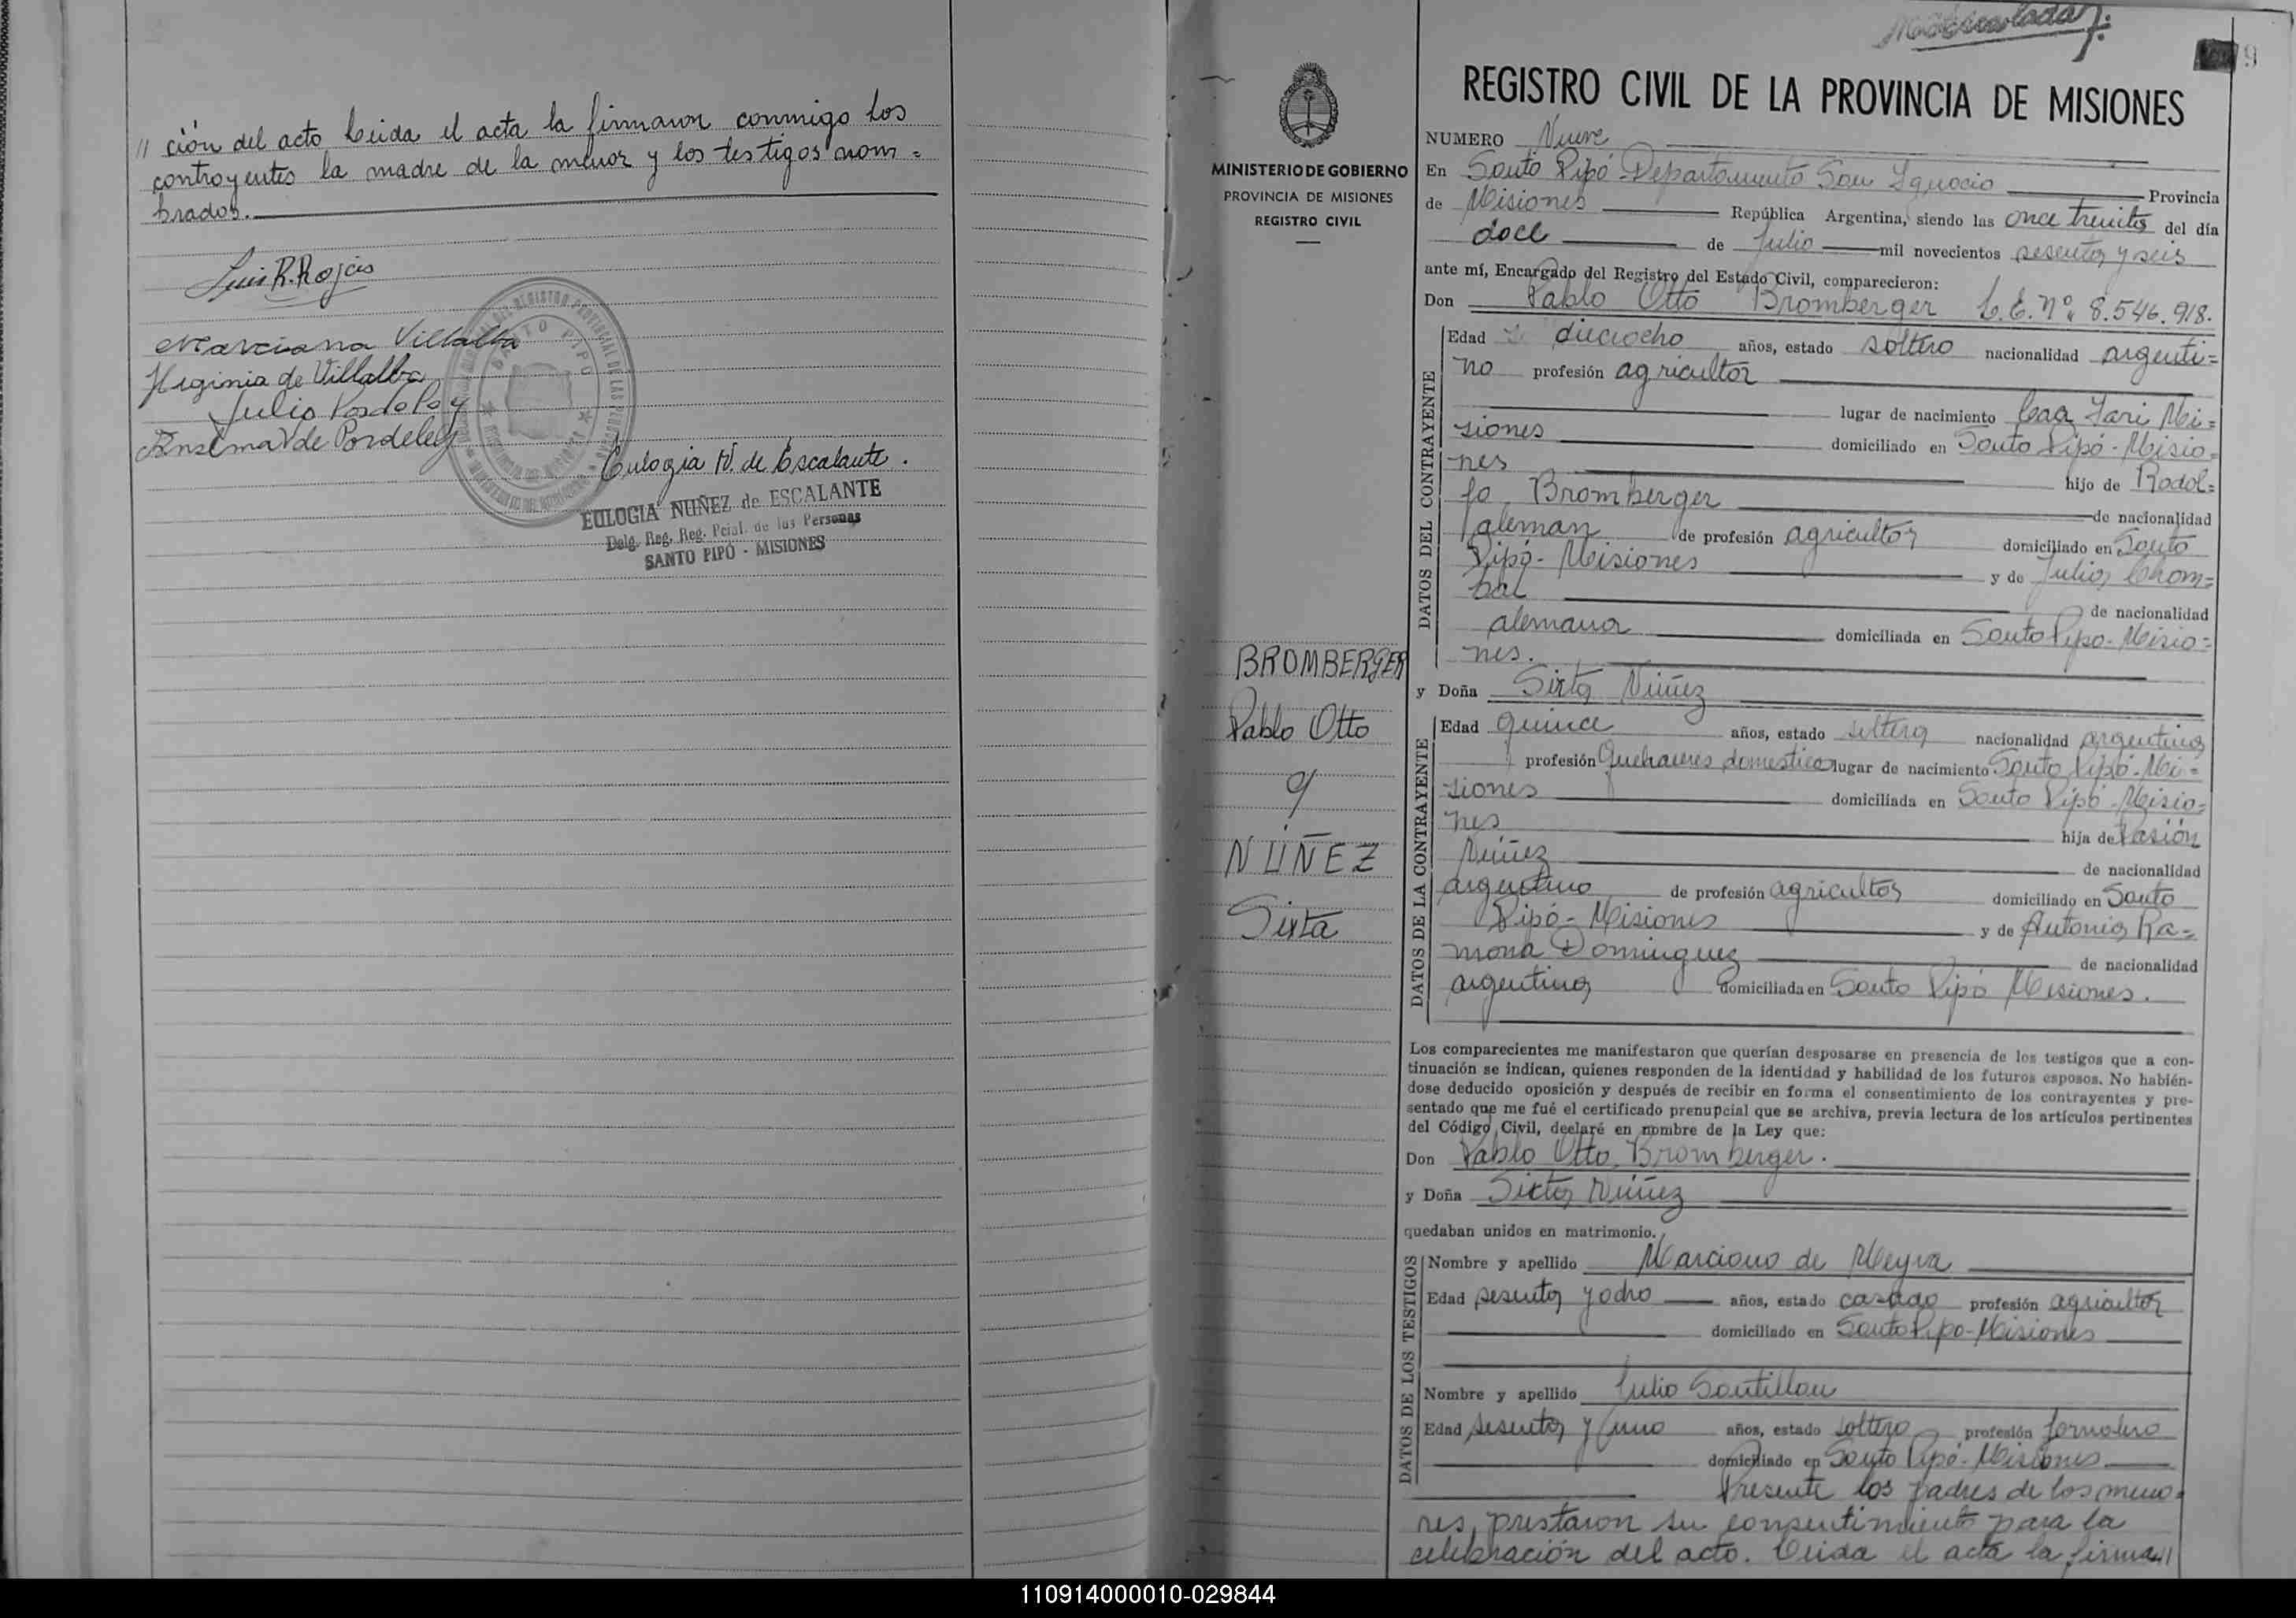 // ción del acto leida el acta la firmaron conmigo los
controyentes la madre de la menor y los testigos nom=
brados.
Luis R. Rojas
Marciana Villalba
Higinia de Villalba
Julio Pordeley
Anselma V de Pordeley
Eulogia N. de Escalante.
EULOGIA NUÑEZ de ESCALANTE
Delg. Reg. Reg. Pcial. de las Personas
SANTO PIPÓ - MISIONES
MINISTERIO DE GOBIERNO
PROVINCIA DE MISIONES
REGISTRO CIVIL
BROMBERGER
Pablo Otto
y
NÚÑEZ
Sixta
9
REGISTRO CIVIL DE LA PROVINCIA DE MISIONES
NUMERO Nueve
En Santo Pipó - Departamento San Ignacio Provincia
de Misiones República Argentina, siendo las once treinta del día
doce de Julio mil novecientos sesenta y seis
ante mí, Encargado del Registro del Estado Civil, comparecieron:
Don Pablo Otto Bromberger L.E.nº 8.546.918.
DATOS DEL CONTRAYENTE
Edad dieciocho años, estado soltero nacionalidad argenti=
no profesión agricultor
lugar de nacimiento Caa Yari Mi=
siones domiciliado en Santo Pipó - Misio=
nes hijo de Rodol=
fo Bromberger de nacionalidad
aleman de profesión agricultor domiciliado en Santo
Pipó - Misiones y de Julia Chom=
bal de nacionalidad
alemana domiciliada en Santo Pipo - Misio=
nes.
y Doña Sixta Núñez
DATOS DE LA CONTRAYENTE
Edad quince años, estado soltera nacionalidad argentina
profesión Quehaceres domestico lugar de nacimiento Santo Pipó - Mi=
siones domiciliada en Santo Pipó - Misio=
nes hija de Pasión
Núñez de nacionalidad
argentino de profesión agricultor domiciliado en Santo
Pipó - Misiones y de Antonia Ra=
mona Dominguez de nacionalidad
argentina domiciliada en Santo Pipó Misiones.
Los comparecientes me manifestaron que querían desposarse en presencia de los testigos que a con-
tinuación se indican, quienes responden de la identidad y habilidad de los futuros esposos. No habién-
dose deducido oposición y después de recibir en forma el consentimiento de los contrayentes y pre-
sentado que me fué el certificado prenupcial que se archiva, previa lectura de los artículos pertinentes
del Código Civil, declaré en nombre de la Ley que:
Don Pablo Otto Bromberger.
y Doña Sixta Núñez
quedaban unidos en matrimonio.
DATOS DE LOS TESTIGOS
Nombre y apellido Marciano de Meyra
Edad sesenta y ocho años, estado casado profesión agricultor
domiciliado en Santo Pipo - Misiones
Nombre y apellido Julio Santillan
Edad sesenta y uno años, estado soltero profesión Jornalero
domiciliado en Santo Pipó - Misiones
Presente los padres de los meno=
res, prestaron su consentimiento para la
celebración del acto. Leida el acta la firma//
110914000010-029844